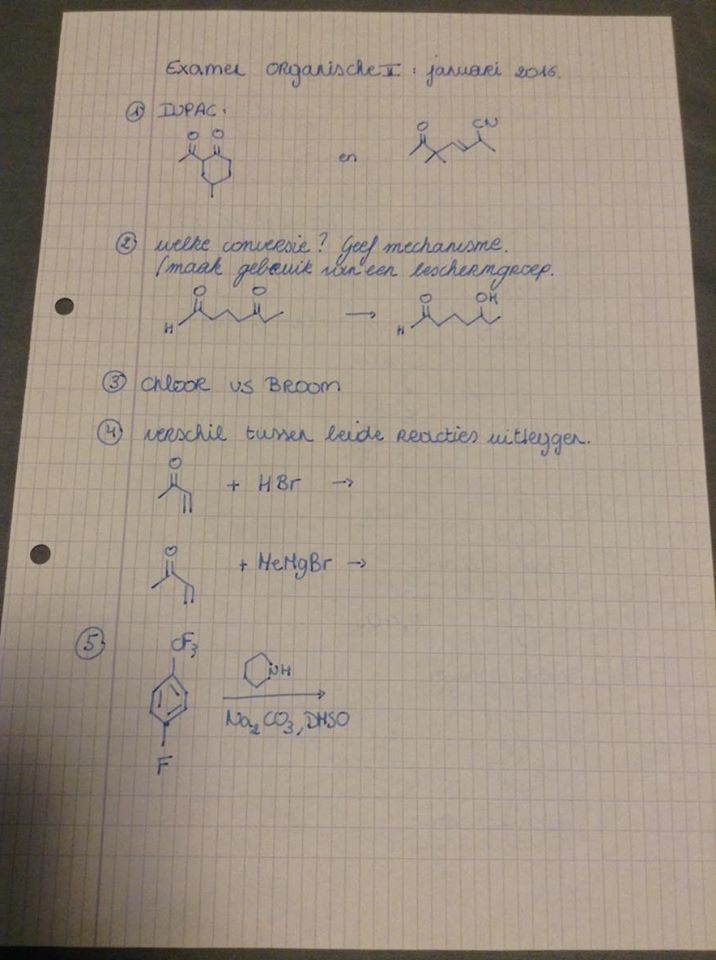 Examen Organische II : januari 2016.
① IUPAC.
O O
en
O CN
② welke conversie? Geef mechanisme.
(maak gebruik van een beschermgroep.
O O → O OH
H H
③ chloor vs Broom
④ verschil tussen beide reacties uitleggen.
O
+ HBr →
O
+ MeMgBr →
⑤
CF3
NH
Na2CO3, DMSO
F